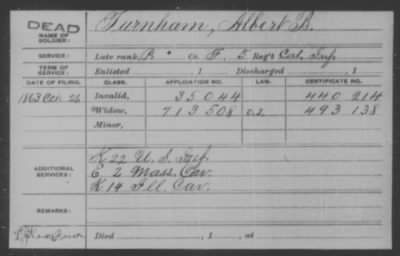 DEAD
NAME OF SOLDIER: Turnham, Albert B.
SERVICE: Late rank, P " Co. F, 5 Reg't Cal. Inf.
TERM OF SERVICE: Enlisted , 1 Discharged , 1
DATE OF FILING. CLASS. APPLICATION NO. LAW. CERTIFICATE NO.
1863 Oct 26 Invalid, 35044 440 214
Widow, 713508 493 138
Minor,
ADDITIONAL SERVICES: K 22 U. S. Inf.
E 2 Mass. Cav.
K 14 Ill. Cav.
REMARKS:
Died , 1 , at